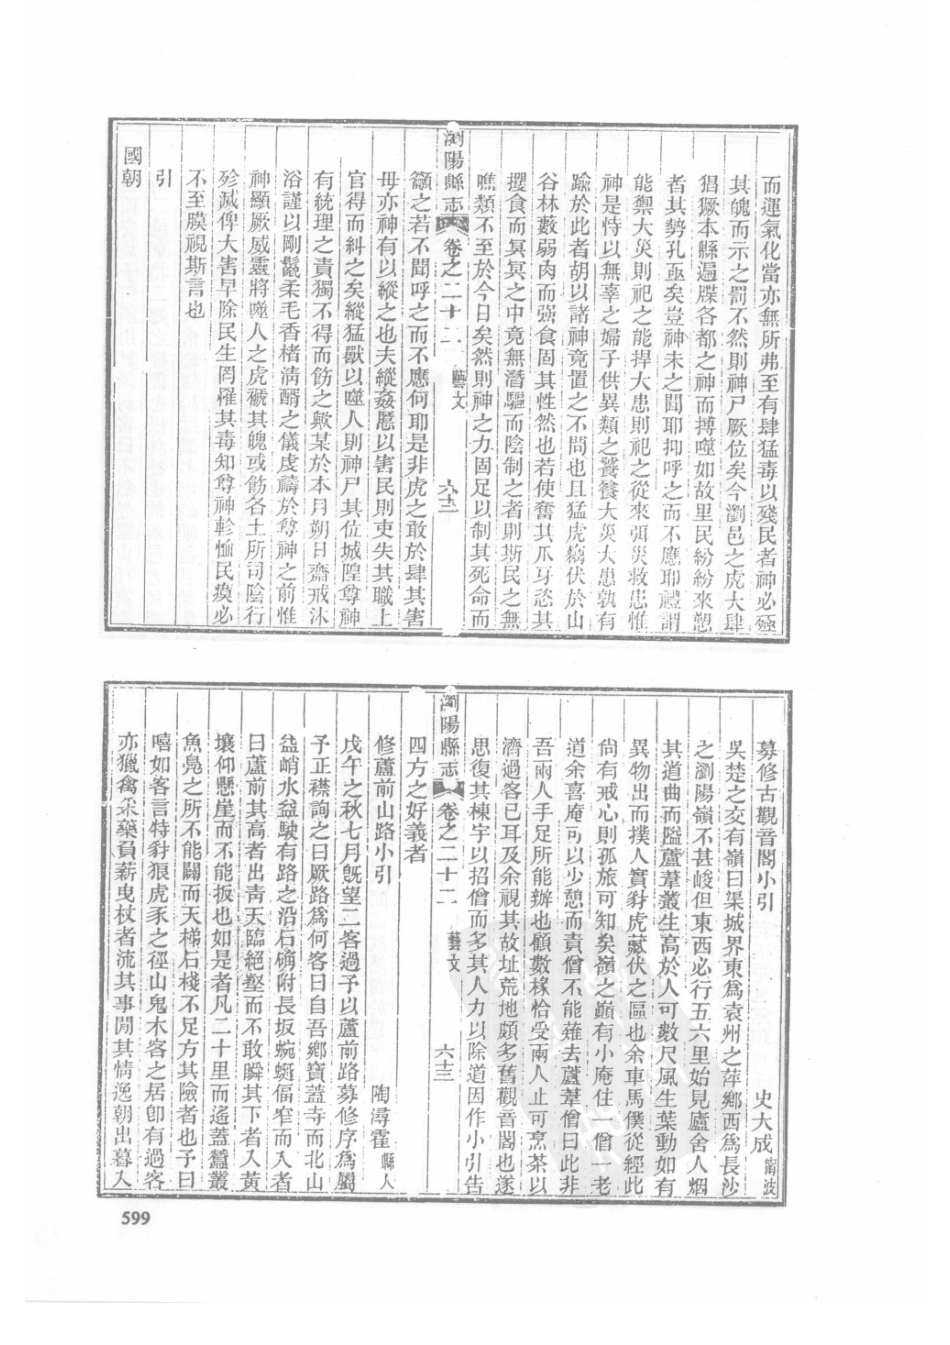 而運氣化當亦無所弗至有肆猛毒以殘民者神必殛
其魄而示之罰不然則神尸厥位矣今瀏邑之虎大肆
猖獗本縣遍牒各都之神而搏噬如故里民紛紛來愬
者其勢孔亟矣豈神未之聞耶抑呼之而不應耶禮謂
能禦大災則祀之能捍大患則祀之從來弭災救患惟
神是恃以無辜之婦子供異類之饕餮大災大患孰有
踰於此者胡以諸神竟置之不問也且猛虎竊伏於山
谷林藪弱肉而强食固其性然也若使奮其爪牙恣其
攫食而冥冥之中竟無潛驅而陰制之者則斯民之無
噍類不至於今日矣然則神之力固足以制其死命而
瀏陽縣志 卷之二十二 藝文 六十二
籲之若不聞呼之而不應何耶是非虎之敢於肆其害
毋亦神有以縱之也夫縱姦慝以害民則吏失其職上
官得而糾之矣縱猛獸以噬人則神尸其位城隍尊神
有統理之責獨不得而飭之歟某於本月朔日齋戒沐
浴謹以剛鬣柔毛香楮清醑之儀虔禱於尊神之前惟
神顯厥威靈將噬人之虎褫其魄或飭各土所司陰行
殄滅俾大害早除民生罔罹其毒知尊神軫恤民瘼必
不至膜視斯言也
引
國朝
募修古觀音閣小引 史大成 甯波
吳楚之交有嶺曰渠城界東爲袁州之萍鄉西爲長沙
之瀏陽嶺不甚峻但東西必行五六里始見廬舍人烟
其道曲而隘蘆葦叢生高於人可數尺風生葉動如有
異物出而撲人實豺虎藏伏之區也余車馬僕從經此
尙有戒心則孤旅可知矣嶺之巓有小庵住一僧一老
道余喜庵可以少憩而責僧不能薙去蘆葦僧曰此非
吾兩人手足所能辦也顧數椽恰受兩人止可烹茶以
濟過客已耳及余視其故址荒地頗多舊觀音閣也遂
思復其棟宇以招僧而多其人力以除道因作小引告
瀏陽縣志 卷之二十二 藝文 六十三
四方之好義者
修蘆前山路小引 陶潯霍 縣人
戊午之秋七月旣望二客過予以蘆前路募修序爲屬
予正襟詢之曰厥路爲何客曰自吾鄉寶蓋寺而北山
益峭水益駛有路之沿石磧附長坂蜿蜒偪窄而入者
曰蘆前其高者出青天臨絕壑而不敢瞬其下者入黄
壤仰懸崖而不能扳也如是者凡二十里而遙蓋蠶叢
魚鳧之所不能闢而天梯石棧不足方其險者也予曰
嘻如客言特豺狼虎豕之徑山鬼木客之居卽有過客
亦獵禽采藥負薪曳杖者流其事閒其情逸朝出暮入
599